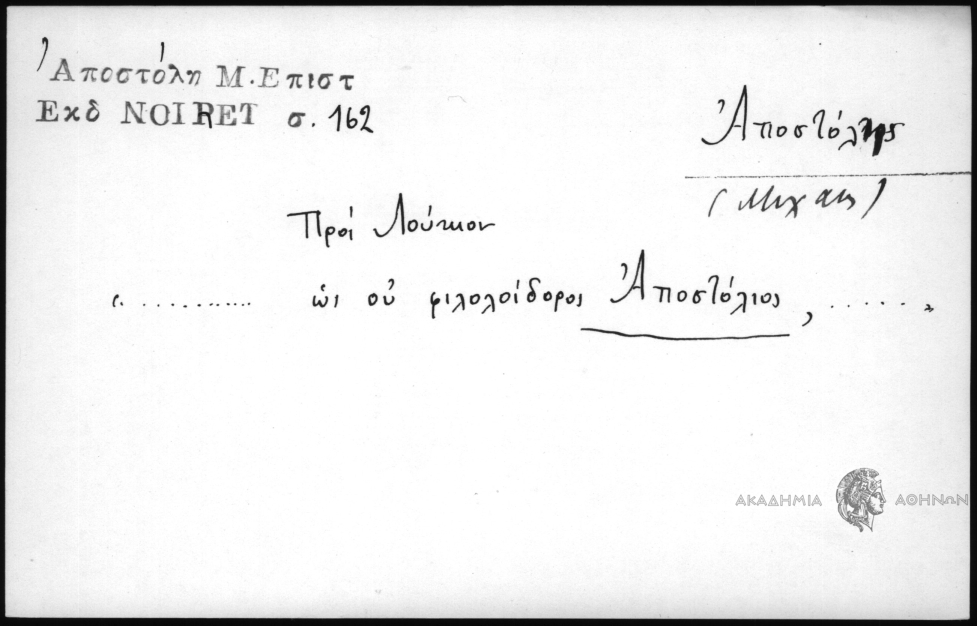 Ἀποστόλη Μ. Επιστ
Εκδ NOIRET σ. 162
Ἀποστόλης
(Μιχαήλ)
Πρὸς Λούκιον
« .......... ὡς οὐ φιλολοίδορος Ἀποστόλιος, ...... »
ΑΚΑΔΗΜΙΑ ΑΘΗΝΩΝ